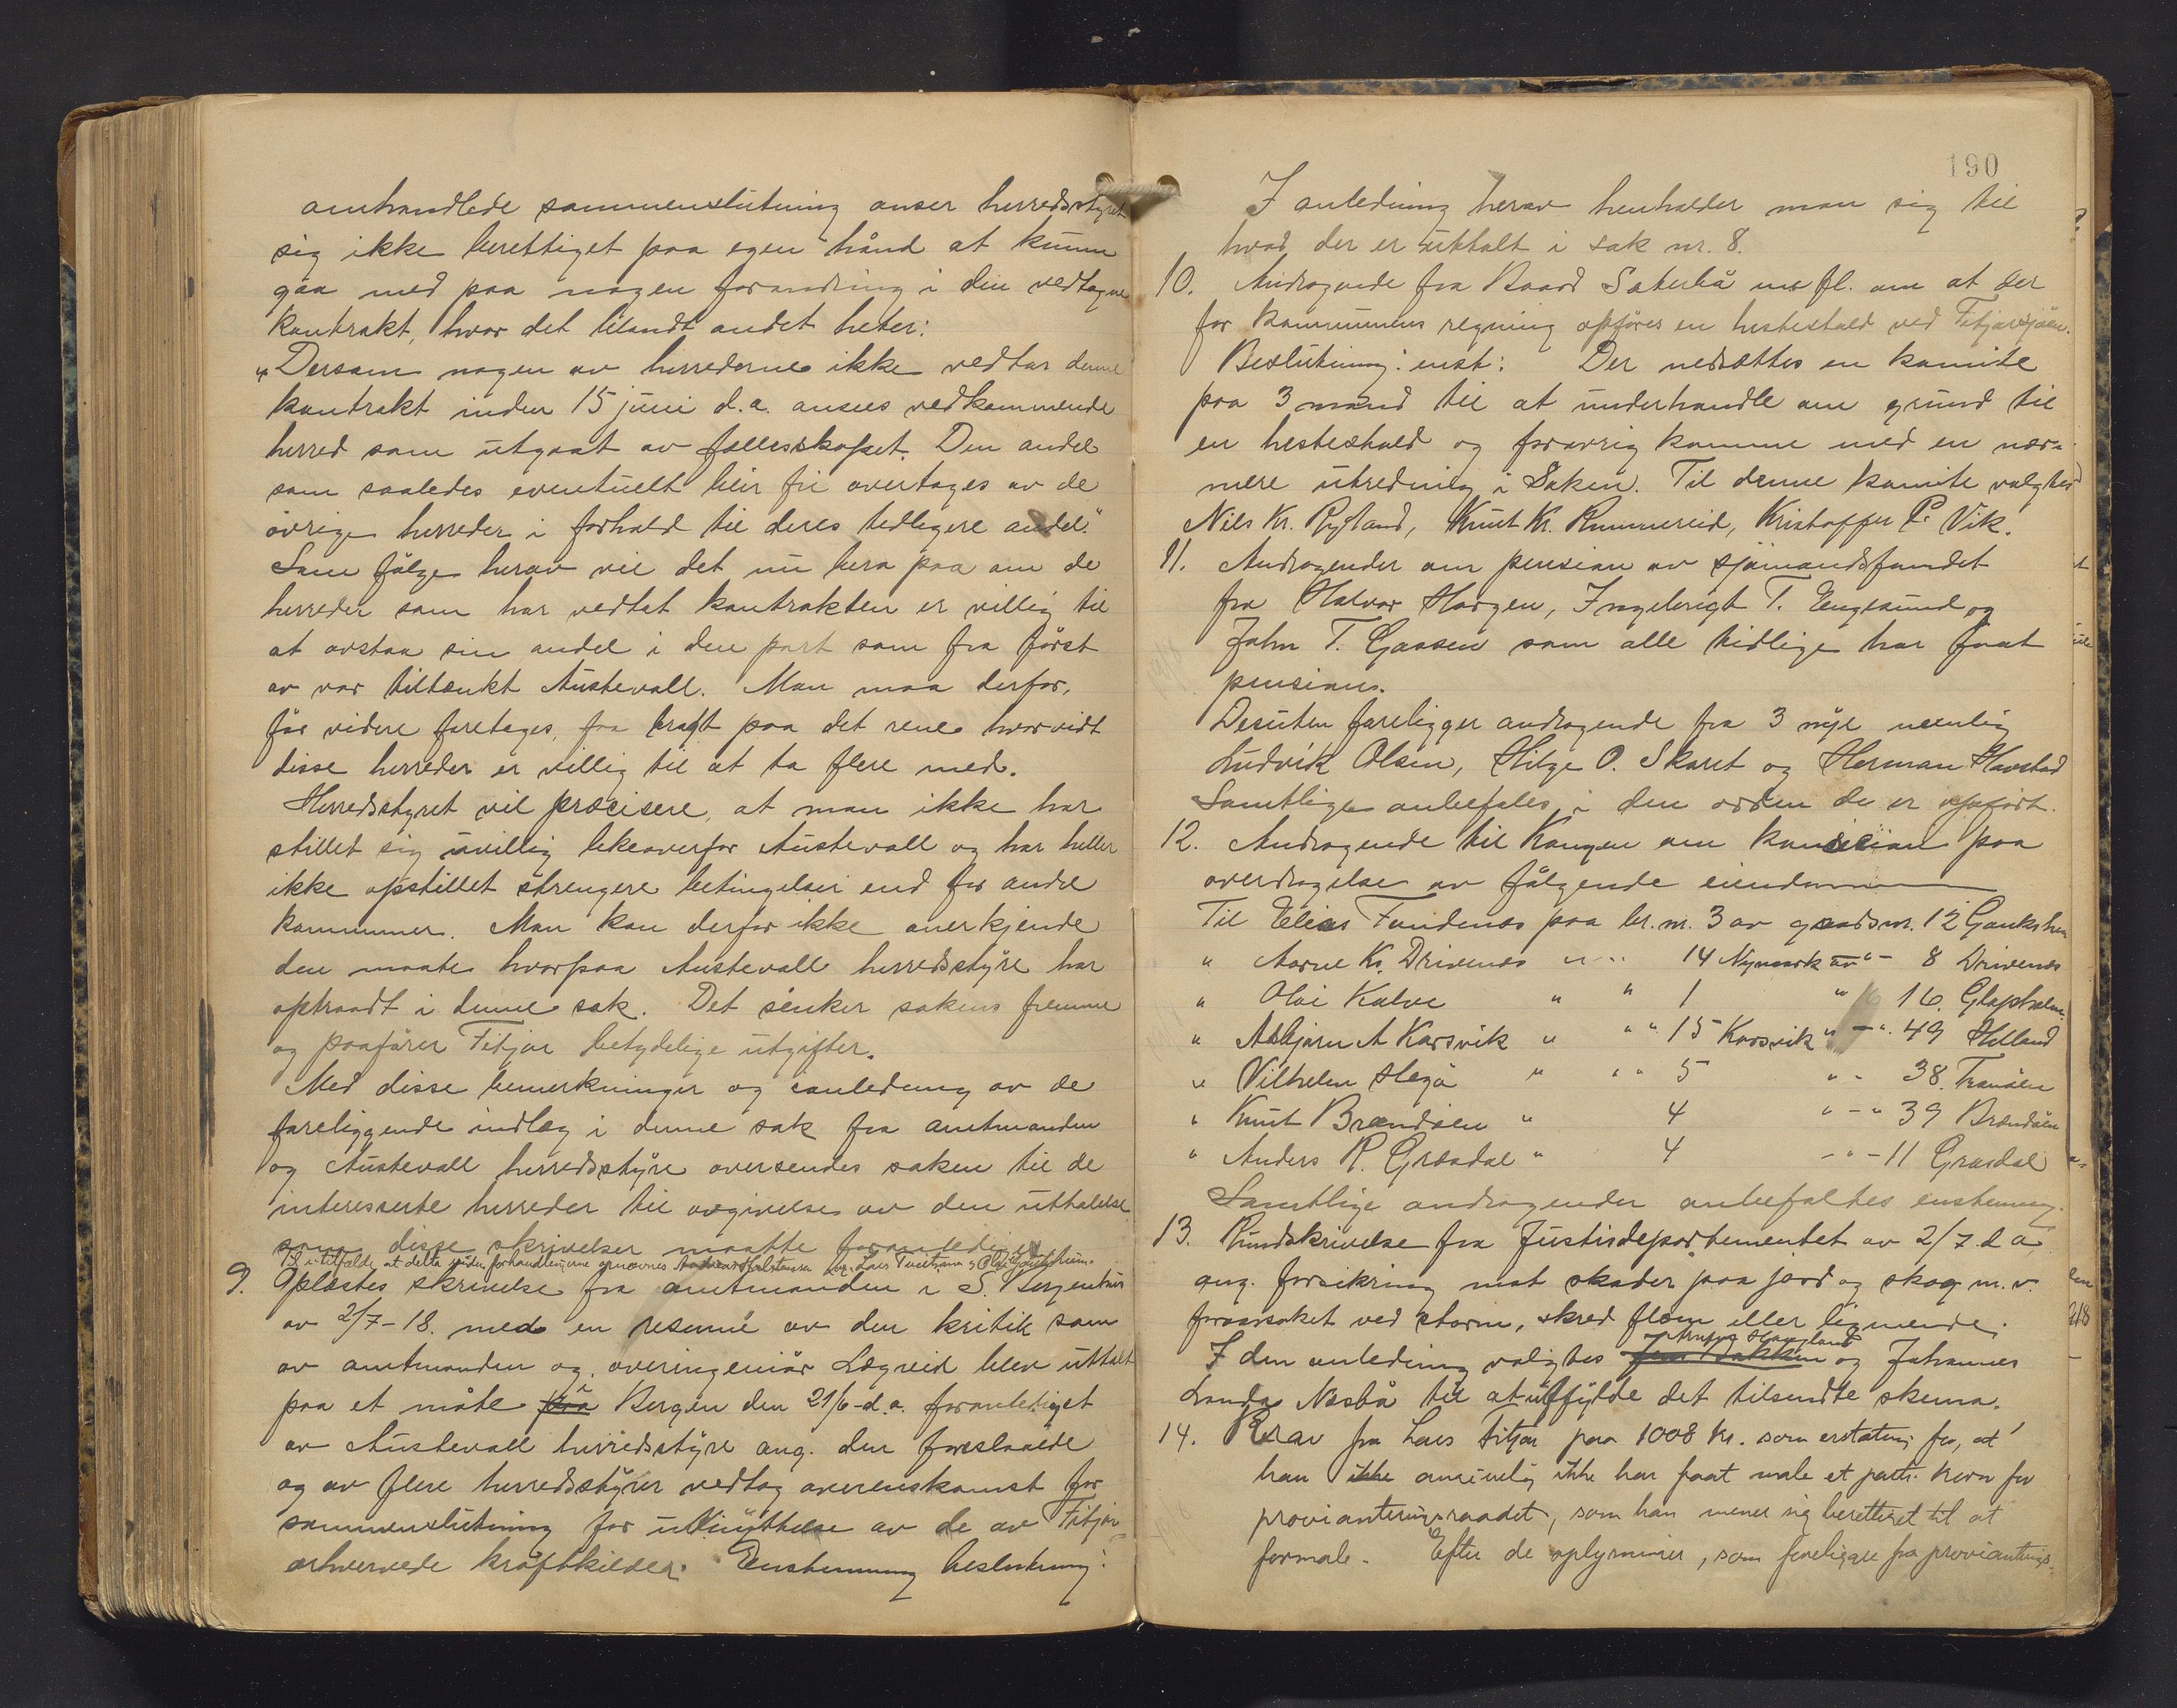 omhandlede sammenslutning anser herredsstyret
sig ikke berettiget paa egen hånd at kunne
gaa med paa nogen forandring i den vedtagne
kontrakt, hvor det blandt andet heter:
"Dersom nogen av herrederne ikke vedtar denne
kontrakt inden 15 juni d.a. ansees vedkommende
herred som utgaat av fællesskapet. Den andel
som saaledes eventuelt blir fri overtages av de
övrige herreder i forhold til deres tidligere andel."
Som fölge herav vil det nu bero paa om de
herreder som har vedtat kontrakten er villig til
at avstaa sin andel i den part som fra först
av var tiltænkt Austevoll. Man maa derfor,
för videre foretages, faa bragt paa det rene hvorvidt
disse herreder er villig til at ta flere med.
Herredsstyret vil præcisere, at man ikke har
stillet sig uvillig likeoverfor Austevoll og har heller
ikke opstillet strengere betingelser end for andre
kommuner. Man kan derfor ikke anerkjende
den maate hvorpaa Austevoll herredsstyre har
optraadt i denne sak. Det sinker sakens fremme
og paaförer Fitjar betydelige utgifter.
Med disse bemerkninger og i anledning av de
foreliggende indlæg i denne sak fra amtmanden
og Austevoll herredsstyre oversendes saken til de
interesserte herreder til avgivelse av den uttalelse
som disse skrivelser maatte foranledige
Til i tilfælde at delta i forhandlingerne opnævnes Lars
9. Oplæstes skrivelse fra amtmanden i S. Bergenhus
av 2/7-18. med en resumé av den kritik som
av amtmanden og overingeniör Lægreid blev uttalt
paa et möte paa Bergen den 21/6-d.a. foranlediget
av Austevoll herredsstyre ang. den foreslaaede
og av flere herredsstyrer vedtag overenskomst for
sammenslutning for utnyttelse av de av Fitjar
erhvervede kraftkilder. Enstemmig beslutning:
190
I anledning herav henholder man sig til
hvad der er uttalt i sak nr. 8.
10. Andragende fra Baard Sæterbö m. fl. om at der
for kommunens regning opföres en hestestald ved Fitjarsjöen.
Beslutning: enst: Der nedsættes en komite
paa 3 mand til at underhandle om grund til
en hestestald og forövrig komme med en nær-
mere utredning i Saken. Til denne komite valgtes
Nils Kr. Rygland, Knut Kr. Rimmereid, Kristoffer P. Vik.
11. Andragender om pension av sjömandsfondet
fra Halvor Horgen, Ingebrigt T. Engesund og
John T. Gaasen som alle tidlige har faat
pension.
Desuten foreligger andragende fra 3 nye nemlig
Ludvik Olsen, Hilge O. Skaret og Herman Havstad
Samtlige anbefales i den orden de er opfört.
12. Andragende til Kongen om konsesion paa
overdragelse av fölgende eiendomme
Til Elias Tundenæs paa br. nr. 3 av gaardsnr. 12
" Aarne Kr. Drivenes " " 14 Nymark av " - 8 Drivenes
" Olai Kalve " " 1 " 16. Glapholm.
" Asbjörn A Korsvik " " " 15 Korsvik " - " 49 Helland
" Vilhelm Hegö " " " 5 " - 38. Tranöen
" Knut Brændöen " 4 " - " 39 Brændöen
" Anders R. Græsdal " 4 - " - 11 Græsdal
Samtlige andragender anbefaltes enstemmig.
13. Rundskrivelse fra Justisdepartementet av 2/7 d a
ang. forsikring mot skader paa jord og skog m. v.
foraarsaket ved storm, skred flom eller lignende.
I den anledning valgtes og Johannes
Landa Næsbö til at utfylde det tilsendte skema.
14. Krav fra Lars Fitjar paa 1008 kr. som erstatning for, at
han ikke angivelig ikke har faat male et parti korn for
provianteringsraadet, som han mener sig berettiget til at
formale. Efter de oplysninger, som foreligger fra provianterings-